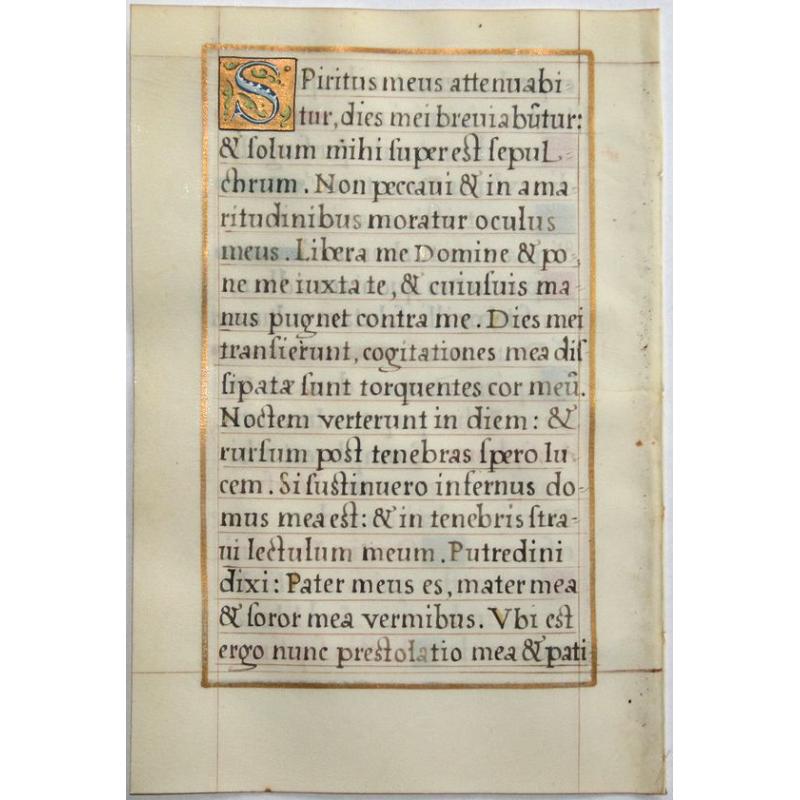 SPiritus meus attenuabi-
tur, dies mei breviabũtur:
& ſolum mihi ſupereſt ſepul-
chrum. Non peccaui & in ama-
ritudinibus moratur oculus
meus. Libera me Domine & po-
ne me iuxta te, & cuiuſuis ma-
nus pugnet contra me. Dies mei
tranſierunt, cogitationes mea diſ-
ſipatæ ſunt torquentes cor meũ.
Noctem verterunt in diem: &
rurſum poſt tenebras ſpero lu-
cem. Si ſuſtinuero infernus do-
mus mea eſt: & in tenebris ſtra-
ui lectulum meum. Putredini
dixi: Pater meus es, mater mea
& ſoror mea vermibus. Vbi eſt
ergo nunc preſtolatio mea & pati